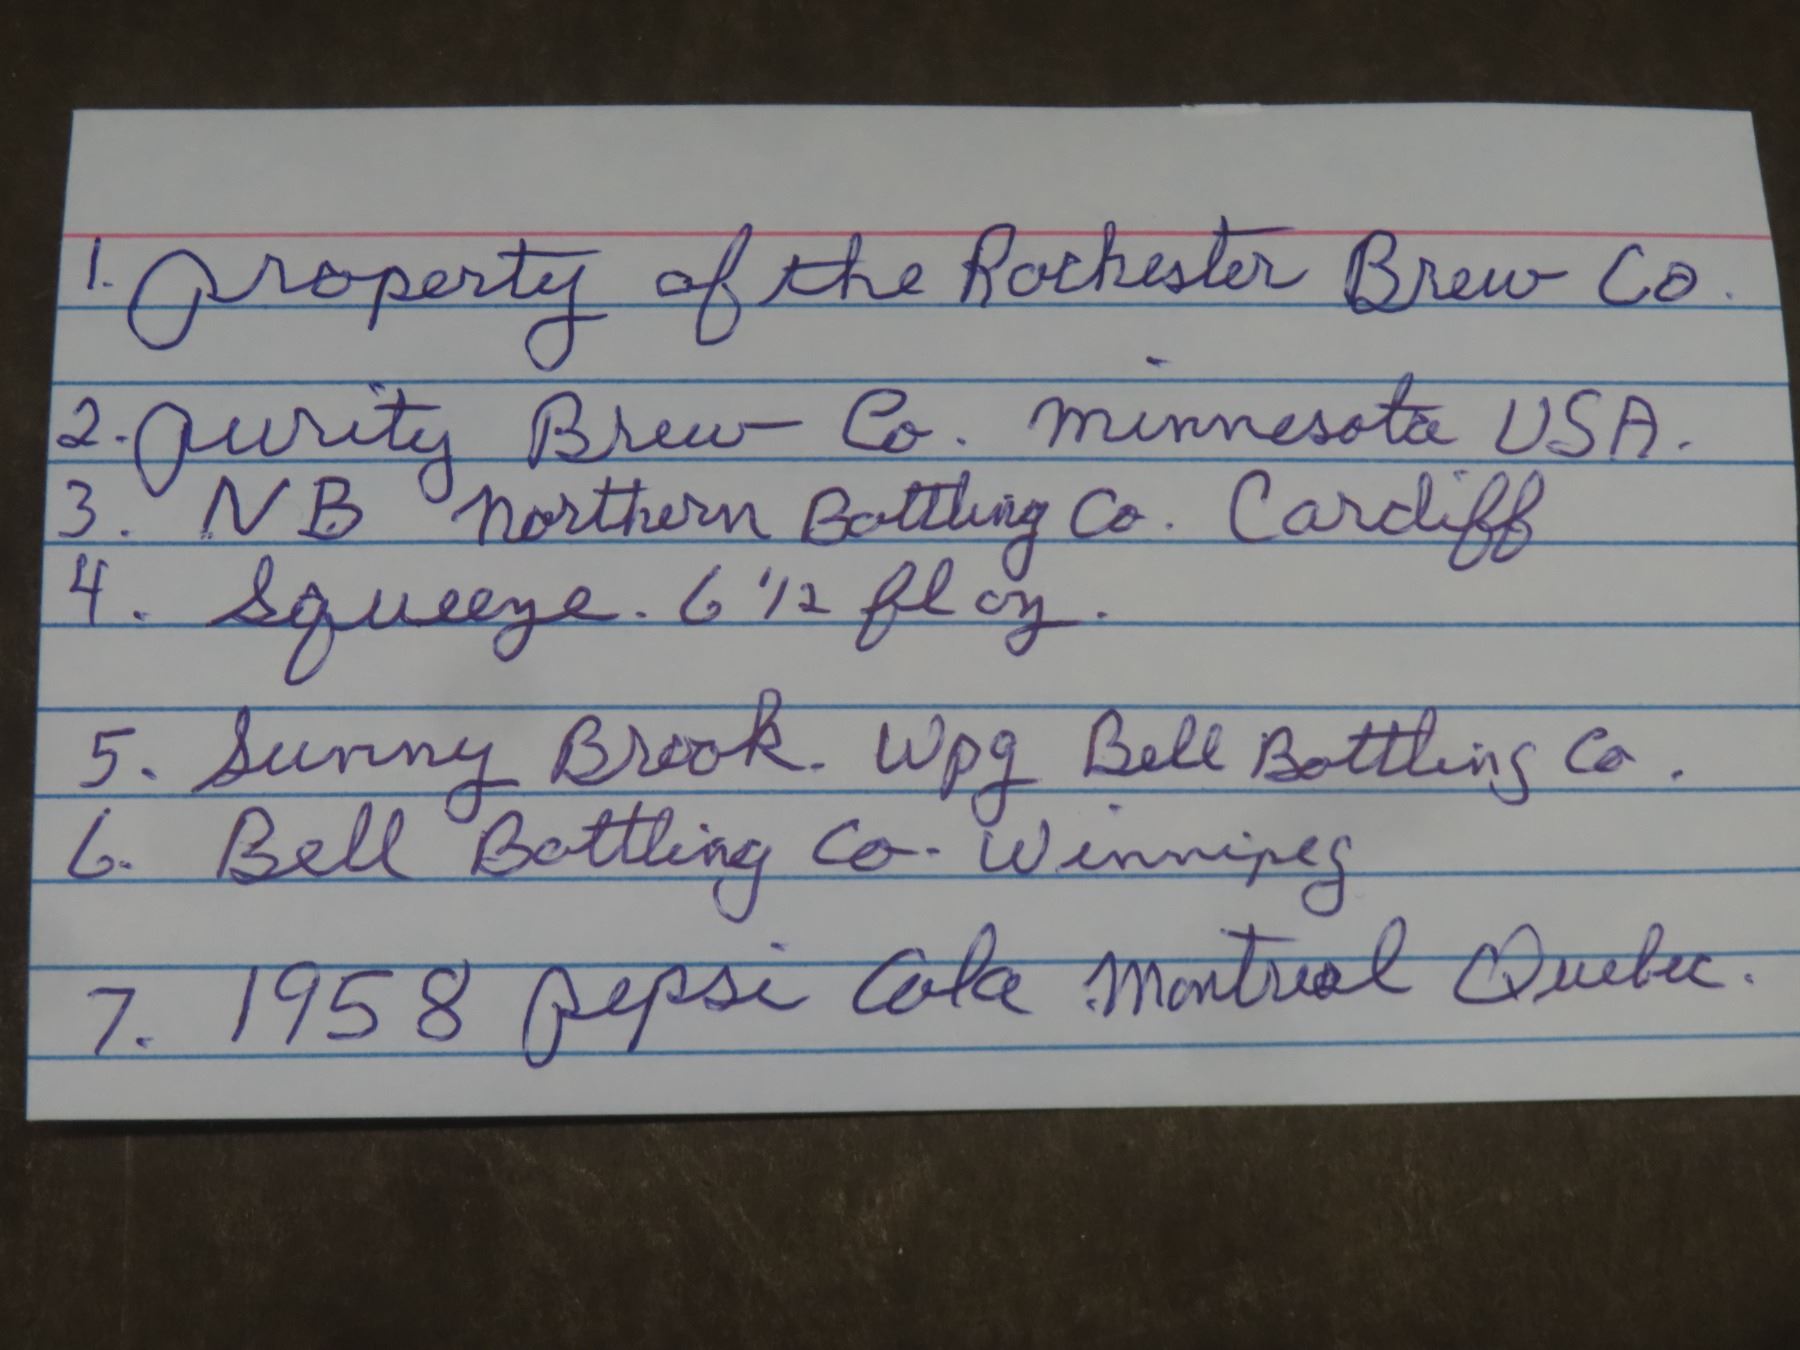 1. Property of the Rochester Brew Co.
2. Purity Brew Co. Minnesota USA.
3. NB Northern Bottling Co. Cardiff
4. Squeeze. 6 1/2 fl oz.
5. Sunny Brook. Wpg Bell Bottling Co.
6. Bell Bottling Co. Winnipeg
7. 1958 Pepsi Cola Montreal Quebec.